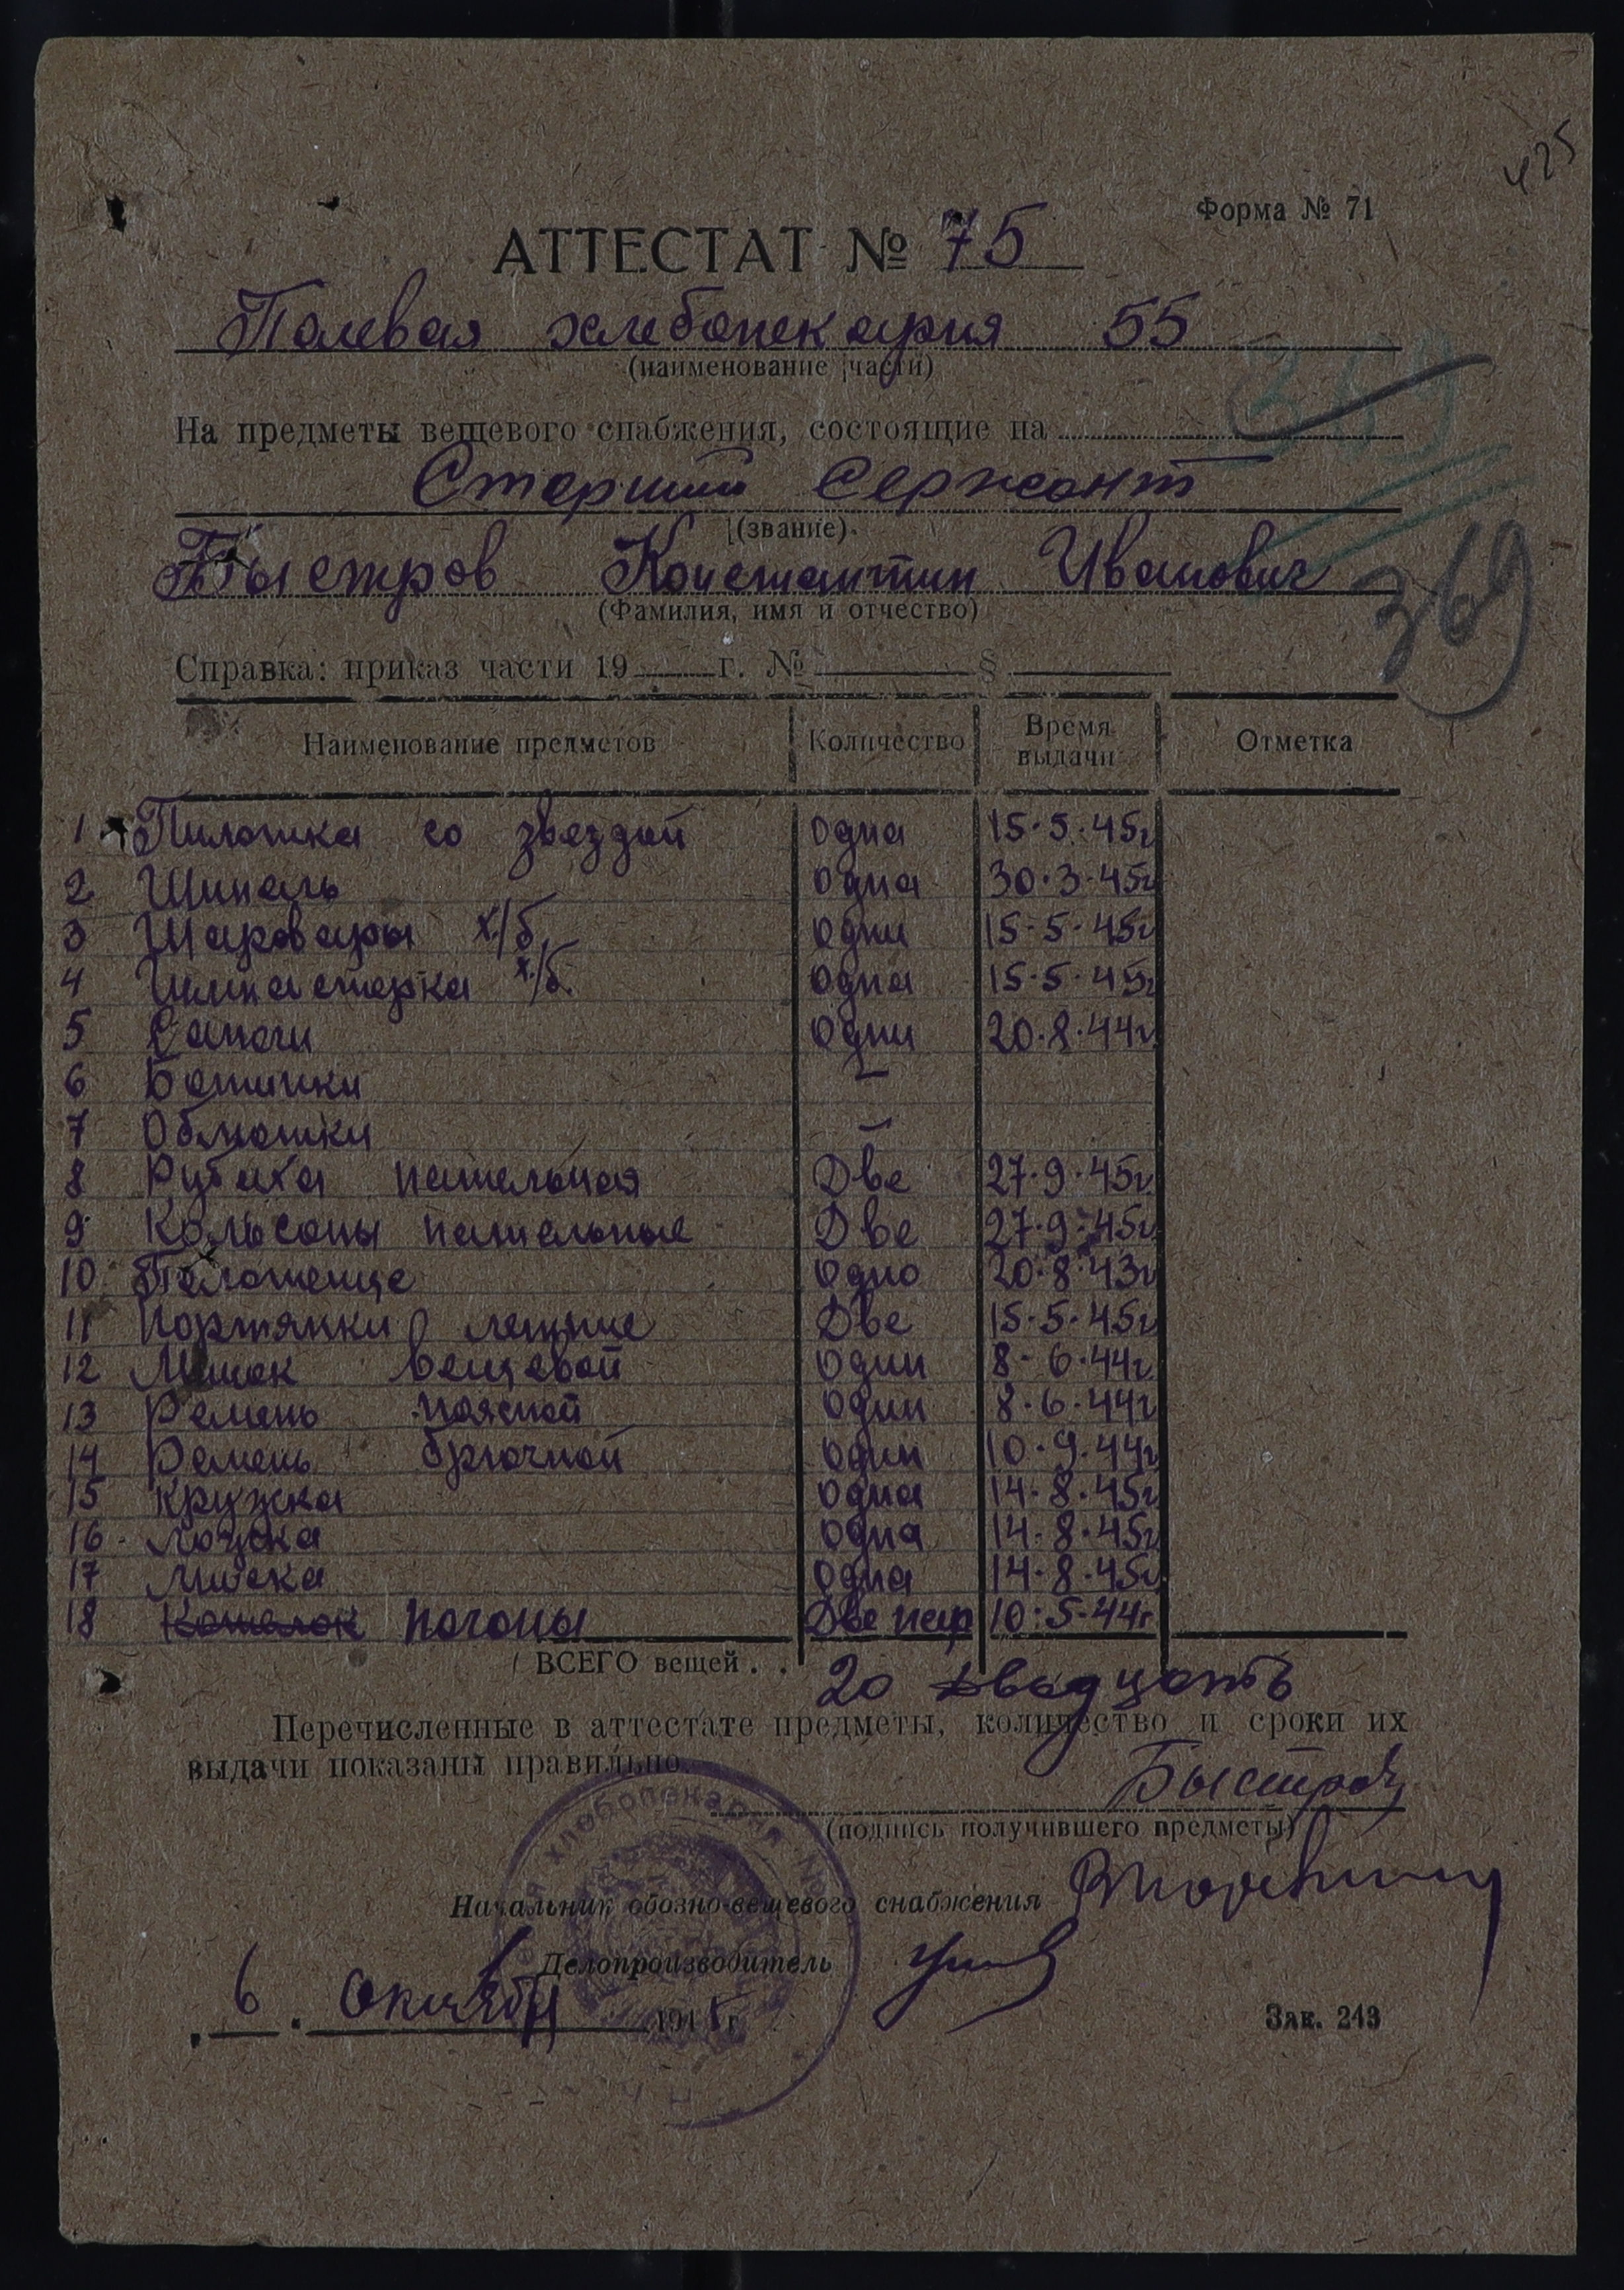 425
Форма № 71
АТТЕСТАТ № 75
Полевая хлебопекарня 55
(наименование части)
369
На предметы вещевого снабжения, состоящие на
Старший Сержант
(звание)
Быстров Константин Иванович
369
(Фамилия, имя и отчество)
Справка: приказ части 19 г. № §
Наименование предметов Количество Время выдачи Отметка
1 Пилотка со звездой одна 15.5.45г
2 Шинель одна 30.3.45г
3 Шаровары х/б. одни 15-5-45г
4 Гимнастерка х/б. одна 15.5.45г
5 Сапоги одни 20.8.44г
6 Ботинки –
7 Обмотки –
8 Рубаха нательная Две 27.9.45г
9 Кальсоны нательные Две 27.9.45г
10 Полотенце Одно 20.8.43г
11 Портянки летние Две 15.5.45г
12 Мешок вещевой один 8-6.44г
13 Ремень поясной один 8.6.44г
14 Ремень брючной один 10.9.44г
15 Кружка одна 14.8.45г
16 Ложка одна 14.8.45г
17 Миска одна 14.8.45г
18 Котелок погоны Две пар 10.5.44г
ВСЕГО вещей . . 20 двадцать
Перечисленные в аттестате предметы, количество и сроки их
выдачи показаны правильно.
Быстров
(подпись получившего предметы)
хлебопекарня №
Начальник обозно-вещевого снабжения
Делопроизводитель
6 . Октября 1945 г.
Зак. 243